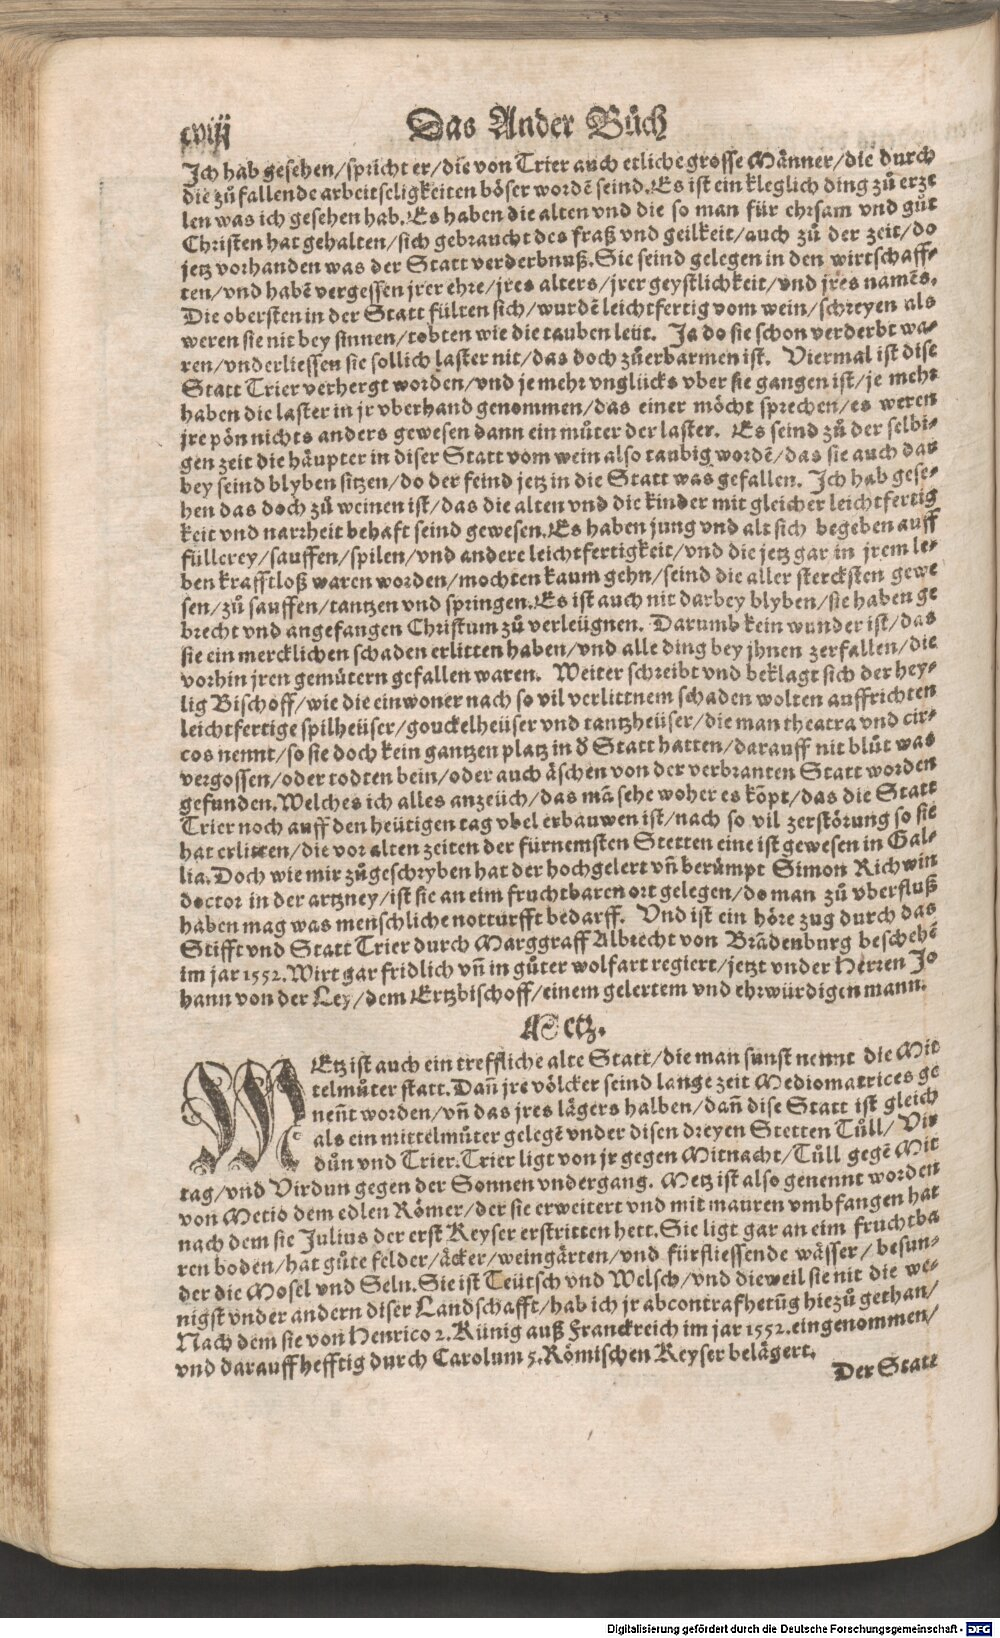 cviij
Das Ander Bůch
Jch hab gesehen/spricht er/die von Trier auch etliche grosse Männer/die durch
die zůfallende arbeitseligkeiten böser wordẽ seind. Es ist ein kleglich ding zů erze
len was ich gesehen hab. Es haben die alten vnd die so man für ehrsam vnd gůt
Christen hat gehalten/sich gebraucht des fraß vnd geilkeit/auch zů der zeit/do
jetz vorhanden was der Statt verderbnuß. Sie seind gelegen in den wirtschaff-
ten/vnd habẽ vergessen jrer ehre/jres alters/jrer geystlichkeit/vnd jres namẽs.
Die obersten in der Statt fülten sich/wurdẽ leichtfertig vom wein/schreyen als
weren sie nit bey sinnen/tobten wie die tauben leüt. Ja do sie schon verderbt wa-
ren/vnderliessen sie sollich laster nit/das doch zůerbarmen ist. Viermal ist dise
Statt Trier verhergt worden/vnd je mehr vnglücks vber sie gangen ist/je mehr
haben die laster in jr vberhand genommen/das einer möcht sprechen/es weren
jre pön nichts anders gewesen dann ein můter der laster. Es seind zů der selbi-
gen zeit die häupter in diser Statt vom wein also taubig wordẽ/das sie auch dar
bey seind blyben sitzen/do der feind jetz in die Statt was gefallen. Jch hab gese-
hen das doch zů weinen ist/das die alten vnd die kinder mit gleicher leichtfertig
keit vnd narrheit behaft seind gewesen. Es haben jung vnd alt sich begeben auff
füllerey/sauffen/spilen/vnd andere leichtfertigkeit/vnd die jetz gar in jrem le-
ben krafftloß waren worden/mochten kaum gehn/seind die aller stercksten gewe
sen/zů sauffen/tantzen vnd springen. Es ist auch nit darbey blyben/sie haben ge
brecht vnd angefangen Christum zů verleügnen. Darumb kein wunder ist/das
sie ein mercklichen schaden erlitten haben/vnd alle ding bey jhnen zerfallen/die
vorhin jren gemütern gefallen waren. Weiter schreibt vnd beklagt sich der hey-
lig Bischoff/wie die einwoner nach so vil verlittnem schaden wolten auffrichten
leichtfertige spilheüser/gouckelheüser vnd tantzheüser/die man theatra vnd cir-
cos nennt/so sie doch kein gantzen platz in ď Statt hatten/darauff nit blůt was
vergossen/oder todten bein/oder auch äschen von der verbranten Statt worden
gefunden. Welches ich alles anzeüch/das mã sehe woher es kõpt/das die Statt
Trier noch auff den heütigen tag vbel erbauwen ist/nach so vil zerstörung so sie
hat erlitten/die vor alten zeiten der fürnemsten Stetten eine ist gewesen in Gal-
lia. Doch wie mir zůgeschryben hat der hochgelert vñ berümpt Simon Richwin
doctor in der artzney/ist sie an eim fruchtbaren ort gelegen/do man zů vberfluß
haben mag was menschliche notturfft bedarff. Vnd ist ein höre zug durch das
Stifft vnd Statt Trier durch Marggraff Albrecht von Brãdenburg beschehẽ
im jar 1552. Wirt gar fridlich vñ in gůter wolfart regiert/jetzt vnder Herren Jo
hann von der Ley/dem Ertzbischoff/einem gelertem vnd ehrwürdigen mann.
Metz.
MEtz ist auch ein treffliche alte Statt/die man sunst nennt die Mit
telmůter statt. Dañ jre völcker seind lange zeit Mediomatrices ge
neñt worden/vñ das jres lägers halben/dañ dise Statt ist gleich
als ein mittelmůter gelegẽ vnder disen dreyen Stetten Tüll/Vir
dün vnd Trier. Trier ligt von jr gegen Mitnacht/Tüll gegẽ Mit
tag/vnd Virdun gegen der Sonnen vndergang. Metz ist also genennt worden
von Metio dem edlen Römer/der sie erweitert vnd mit mauren vmbfangen hat
nach dem sie Julius der erst Keyser erstritten hett. Sie ligt gar an eim fruchtba
ren boden/hat gůte felder/äcker/weingärten/vnd fürfliessende wässer/besun-
der die Mosel vnd Seln. Sie ist Teütsch vnd Welsch/vnd dieweil sie nit die we-
nigst vnder andern diser Landschafft/hab ich jr abcontrafhetũg hiezů gethan/
Nach dem sie von Henrico 2. Künig auß Franckreich im jar 1552. eingenommen/
vnd darauff hefftig durch Carolum 5. Römischen Keyser belägert.
Der Statt
Digitalisierung gefördert durch die Deutsche Forschungsgemeinschaft - DFG